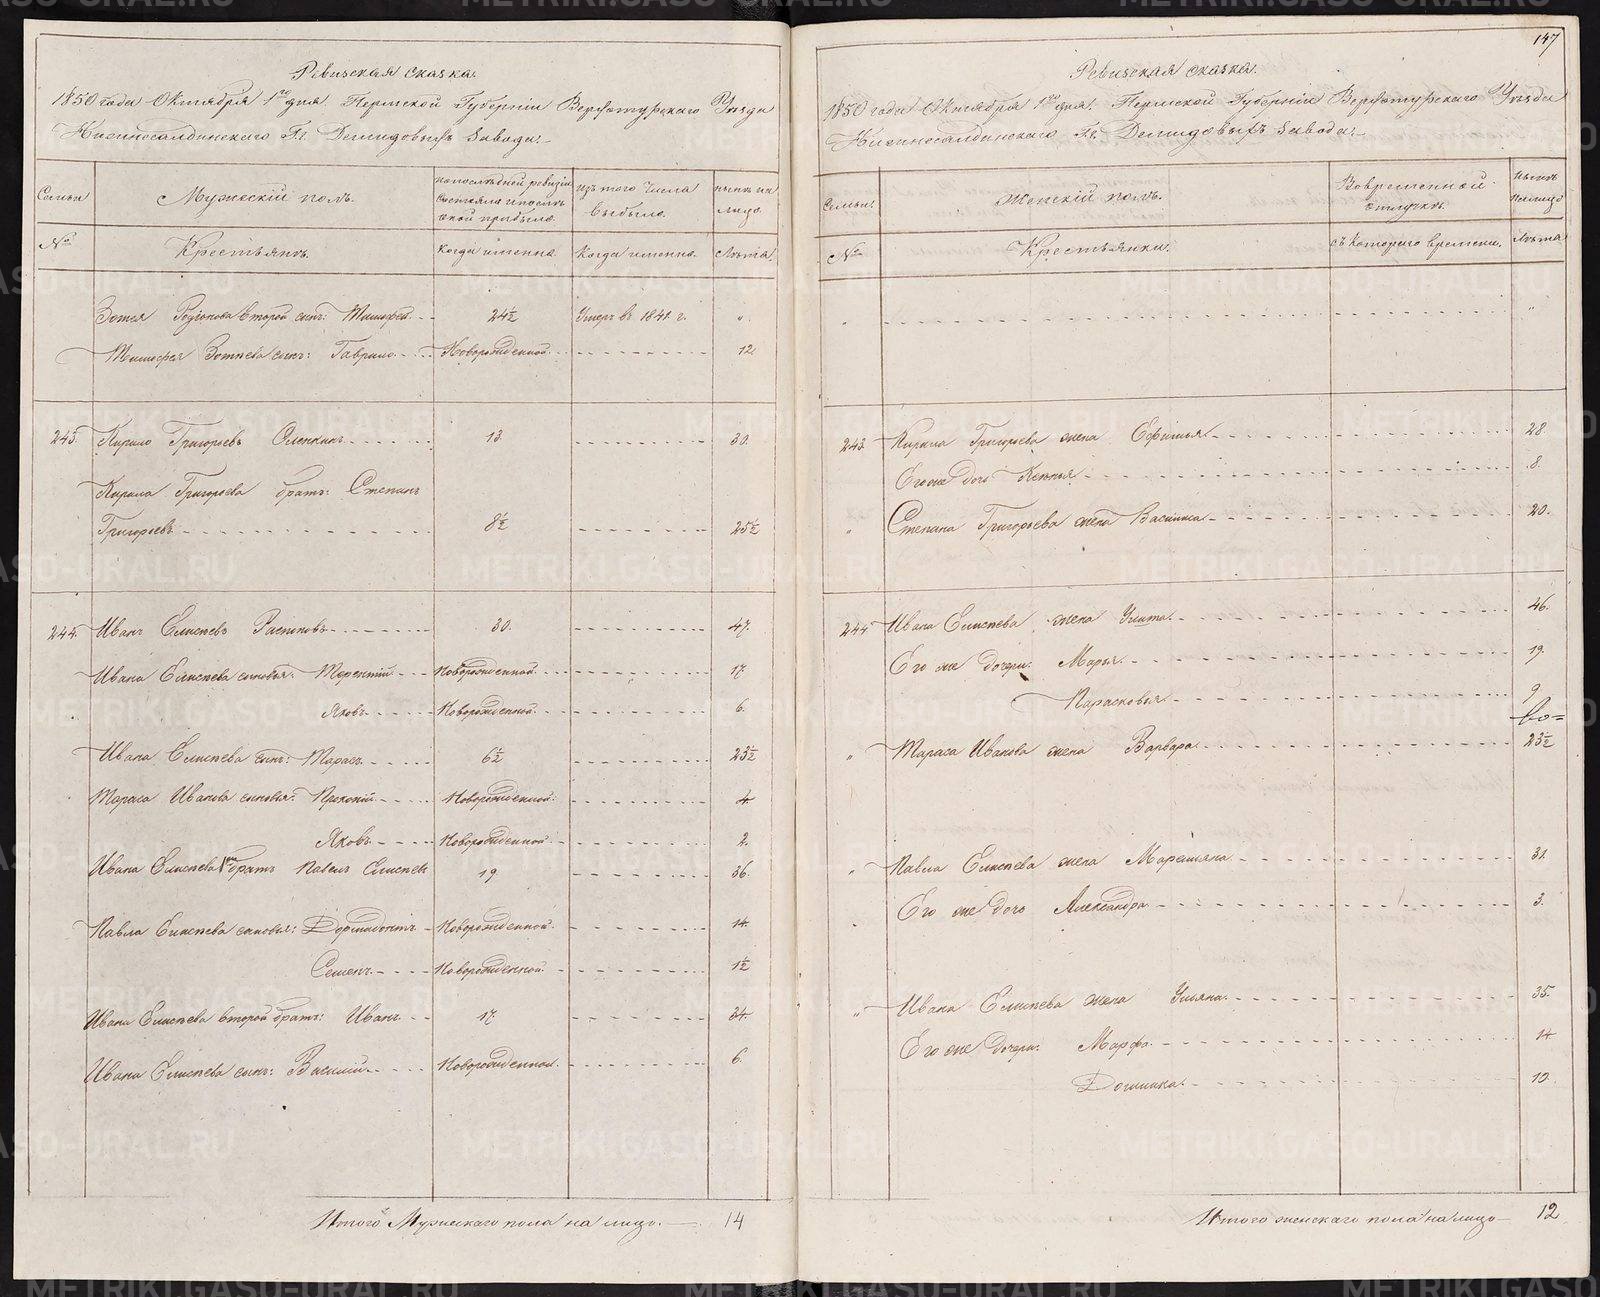 Ревизская сказка.
1850 года Октября 1го дня. Пермской Губерніи Верхотурскаго Уезда
Нижнесалдинскаго Гг. Демидовыхъ завода.
Семьи
Мужескій полъ.
по последней ревизіи состояло и после оной прибыло.
изъ того числа выбыло.
ныне на лицо.
№
Крестьянъ.
когда именно.
Когда именно.
Лета.
Зотея Родіонова второй сынъ: Тимофей 24½ Умеръ въ 1841 г. "
Тимофея Зотеева сынъ: Гаврило Новорожденной 12
243. Кирило Григорьевъ 13. 30.
Кирила Григорьева братъ: Степанъ
Григорьевъ 8½ 25½
244. Иванъ Елисеевъ 30. 47.
Ивана Елисеева сыновья: Терентій Новорожденной 17.
Яковъ Новорожденной 6.
Ивана Елисеева сынъ: Тарасъ 6½ 23½
Тараса Иванова сыновья: Прокопій Новорожденной 4.
Яковъ Новорожденной 2.
Ивана Елисеева 1й братъ Павелъ Елисеев 19 36.
Павла Елисеева сыновья: Дормидонтъ Новорожденной 14.
Семенъ Новорожденной 1½
Ивана Елисеева второй братъ: Иванъ 17. 34.
Ивана Елисеева сынъ: Василій Новорожденной 6.
Итого Мужескаго пола на лицо. 14
147
Ревизская сказка.
1850 года Октября 1го дня. Пермской Губерніи Верхотурскаго Уезда
Нижнесалдинскаго Гг. Демидовыхъ завода.
Семьи.
Женскій полъ.
Во временной отлучке.
ныне на лицо
№
Крестьянки.
съ котораго времени.
Лета
" "
243 Кирила Григорьева жена Ефимья 28.
Его же дочь Ксенья 8.
" Степана Григорьева жена Василиса 20.
244 Ивана Елисеева жена Улита 46.
Его же дочери: Марья 19.
Парасковья 9
" Тараса Иванова жена Варвара 23½
" Павла Елисеева жена Маремьяна 31.
" Его же дочь Александра 3.
" Ивана Елисеева жена Ульяна 35.
Его же дочери: Марфа 14
Домника 10.
Итого женскаго пола на лицо 12
METRIKI.GASO-URAL.RU